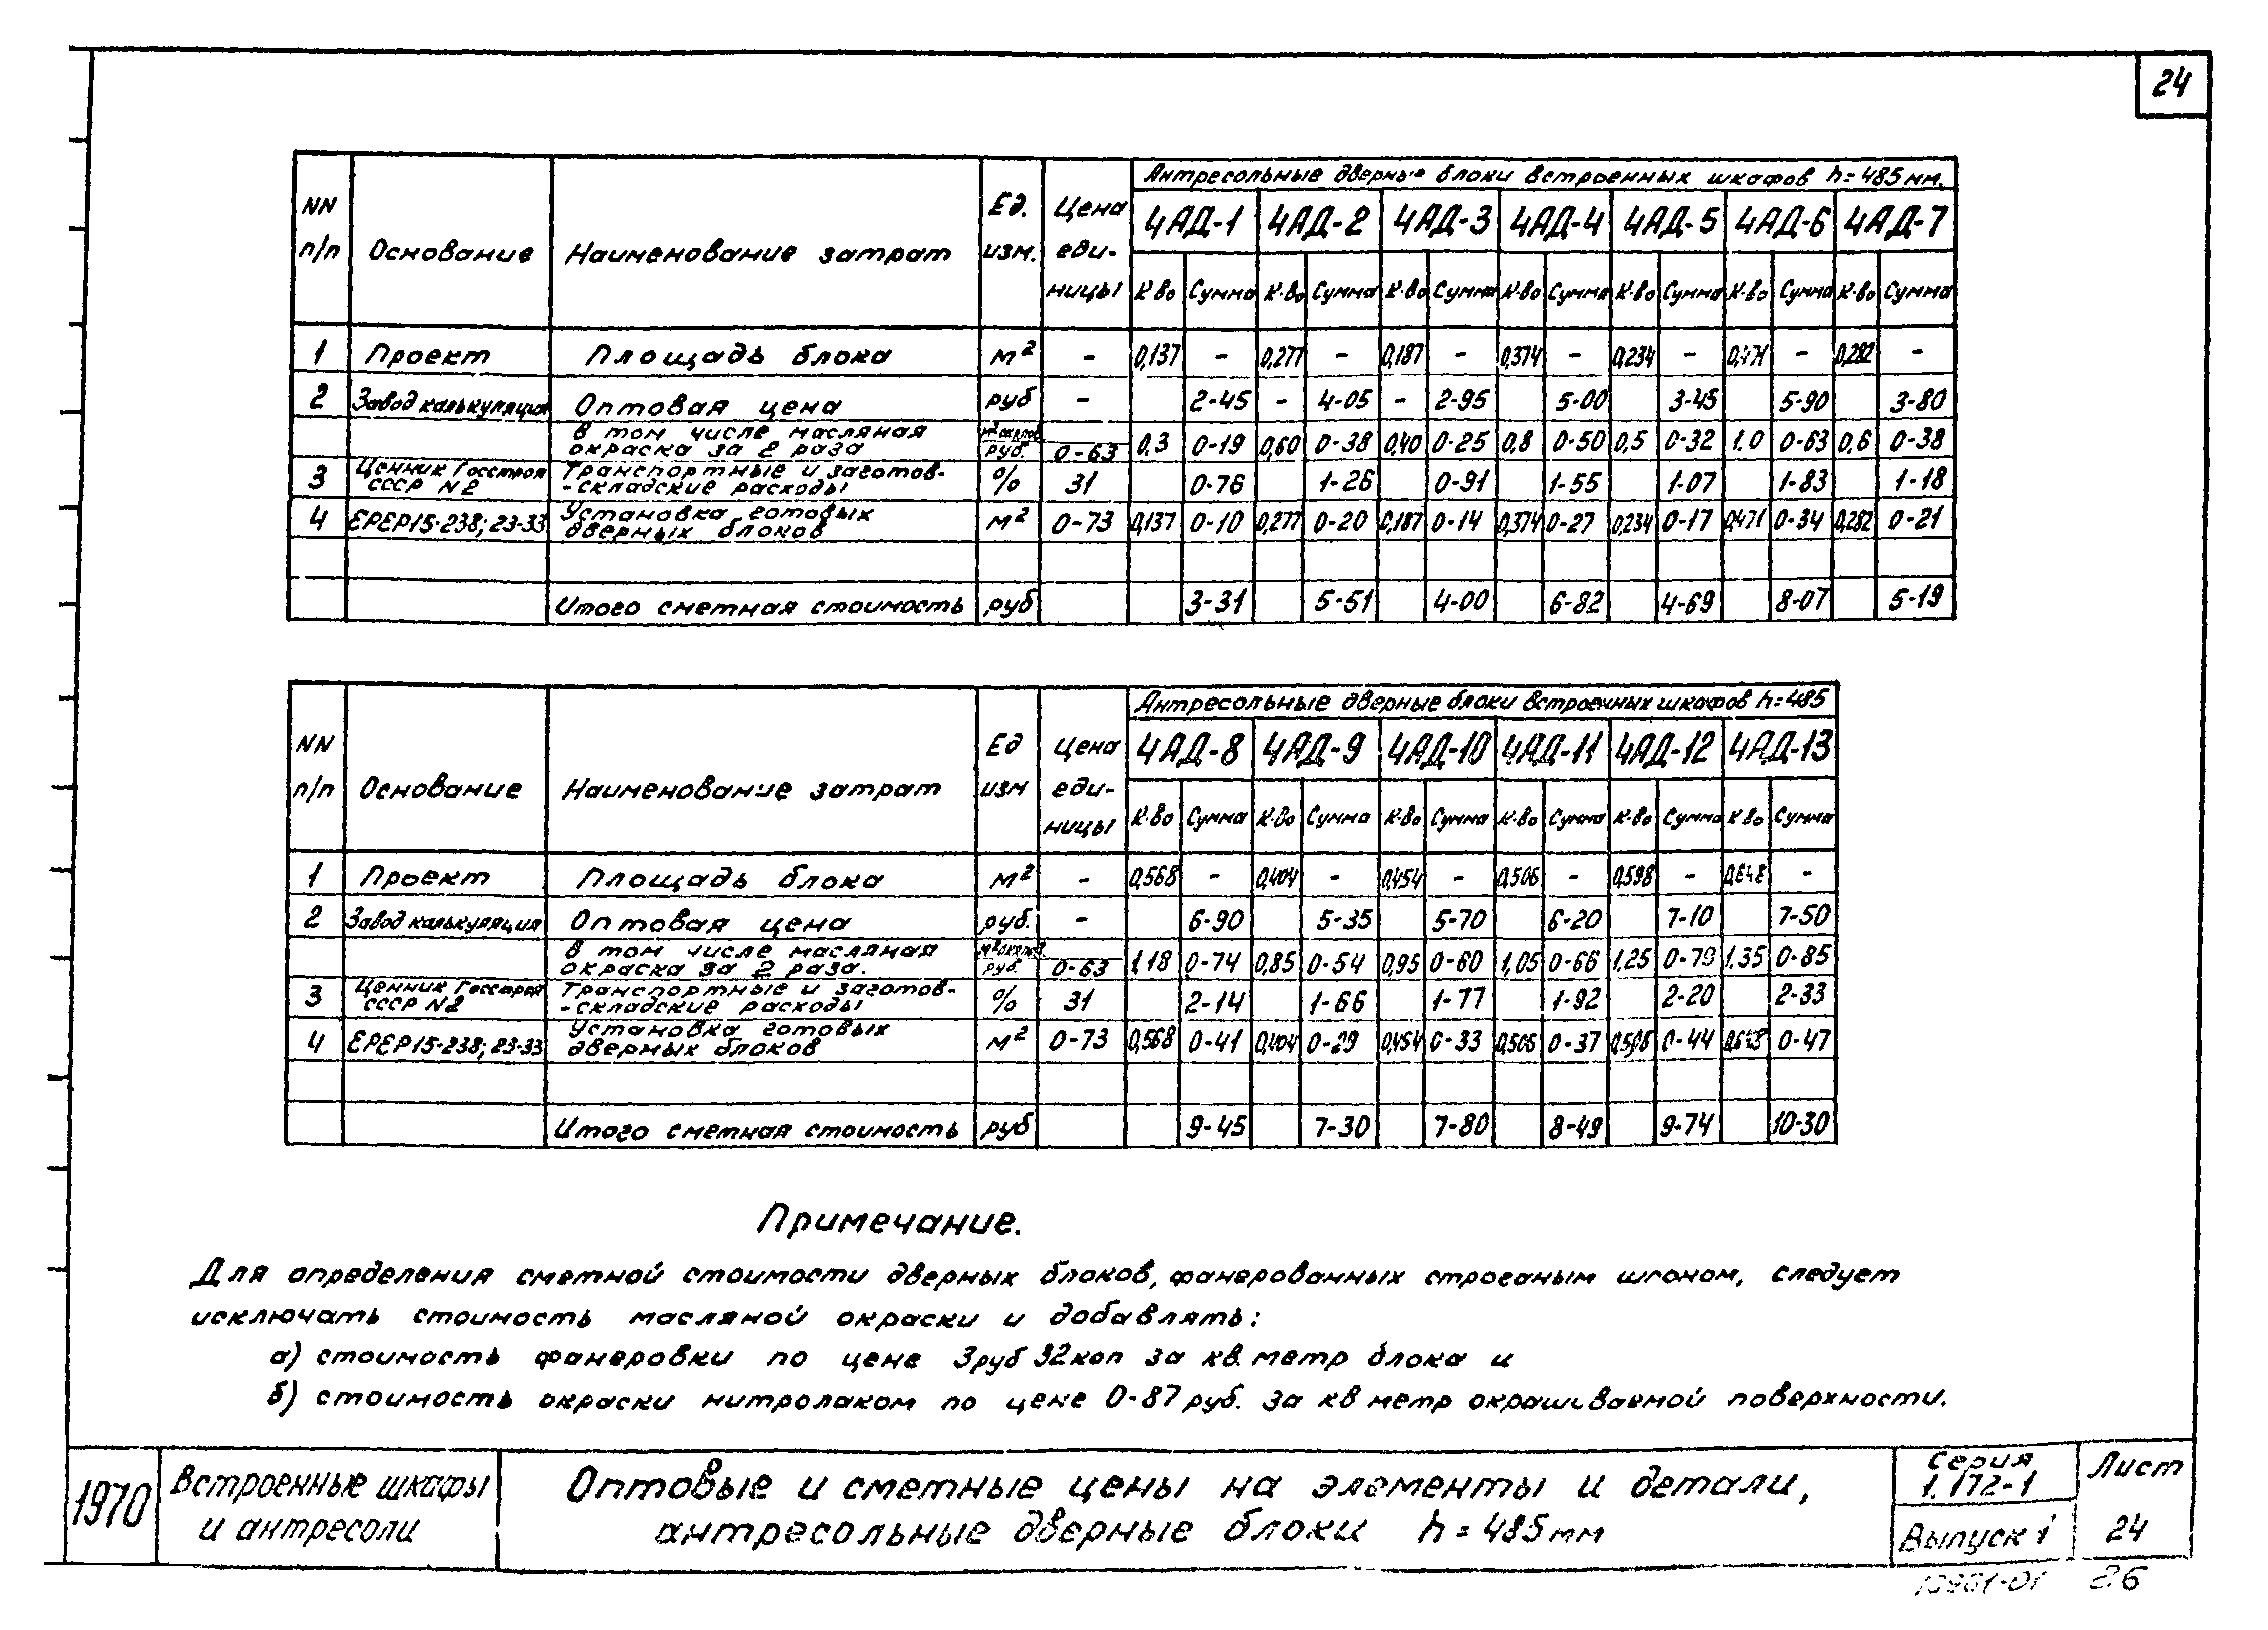 24
NN п/п | Основание | Наименование затрат | Ед. изм. | Цена единицы | Антресольные дверные блоки встроенных шкафов h=485мм.
4АД-1 | 4АД-2 | 4АД-3 | 4АД-4 | 4АД-5 | 4АД-6 | 4АД-7
К-во | Сумма | К-во | Сумма | К-во | Сумма | К-во | Сумма | К-во | Сумма | К-во | Сумма | К-во | Сумма
1 | Проект | Площадь блока | м² | - | 0,137 | - | 0,277 | - | 0,187 | - | 0,374 | - | 0,234 | - | 0,471 | - | 0,282 | -
2 | Завод калькуляция | Оптовая цена | руб | - | 2-45 | - | 4-05 | - | 2-95 | 5-00 | 3-45 | 5-90 | 3-80
В том числе масляная окраска за 2 раза | руб. | 0-63 | 0,3 | 0-19 | 0,60 | 0-38 | 0,40 | 0-25 | 0,8 | 0-50 | 0,5 | 0-32 | 1.0 | 0-63 | 0,6 | 0-38
3 | Ценник Госстроя СССР N2 | Транспортные и заготов--складские расходы | % | 31 | 0-76 | 1-26 | 0-91 | 1-55 | 1-07 | 1-83 | 1-18
4 | ЕРЕР15-238; 23-33 | Установка готовых дверных блоков | м² | 0-73 | 0,137 | 0-10 | 0,277 | 0-20 | 0,187 | 0-14 | 0,374 | 0-27 | 0,234 | 0-17 | 0,471 | 0-34 | 0,282 | 0-21
Итого сметная стоимость | руб | 3-31 | 5-51 | 4-00 | 6-82 | 4-69 | 8-07 | 5-19
NN п/п | Основание | Наименование затрат | Ед изм | Цена единицы | Антресольные дверные блоки встроенных шкафов h=485
4АД-8 | 4АД-9 | 4АД-10 | 4АД-11 | 4АД-12 | 4АД-13
К-во | Сумма | К-во | Сумма | К-во | Сумма | К-во | Сумма | К-во | Сумма | К-во | Сумма
1 | Проект | Площадь блока | м² | - | 0,568 | - | 0,404 | - | 0,454 | - | 0,506 | - | 0,598 | - | 0,648 | -
2 | Завод калькуляция | Оптовая цена | руб. | - | 6-90 | 5-35 | 5-70 | 6-20 | 7-10 | 7-50
В том числе масляная окраска за 2 раза. | руб. | 0-63 | 1.18 | 0-74 | 0,85 | 0-54 | 0,95 | 0-60 | 1,05 | 0-66 | 1.25 | 0-79 | 1.35 | 0-85
3 | Ценник Госстроя СССР N2 | Транспортные и заготов--складские расходы | % | 31 | 2-14 | 1-66 | 1-77 | 1-92 | 2-20 | 2-33
4 | ЕРЕР15-238; 23-33 | Установка готовых дверных блоков | м² | 0-73 | 0,568 | 0-41 | 0,404 | 0-29 | 0,454 | 0-33 | 0,506 | 0-37 | 0,598 | 0-44 | 0,648 | 0-47
Итого сметная стоимость | руб | 9-45 | 7-30 | 7-80 | 8-49 | 9-74 | 10-30
Примечание.
Для определения сметной стоимости дверных блоков, фанерованных строганым шпоном, следует
исключать стоимость масляной окраски и добавлять:
а) стоимость фанеровки по цене 3руб 92коп за кв. метр блока и
б) стоимость окраски нитролаком по цене 0-87 руб. за кв метр окрашиваемой поверхности.
1970
Встроенные шкафы
и антресоли
Оптовые и сметные цены на элементы и детали,
антресольные дверные блоки h=485мм
Серия
1.172-1
Выпуск 1
Лист
24
26